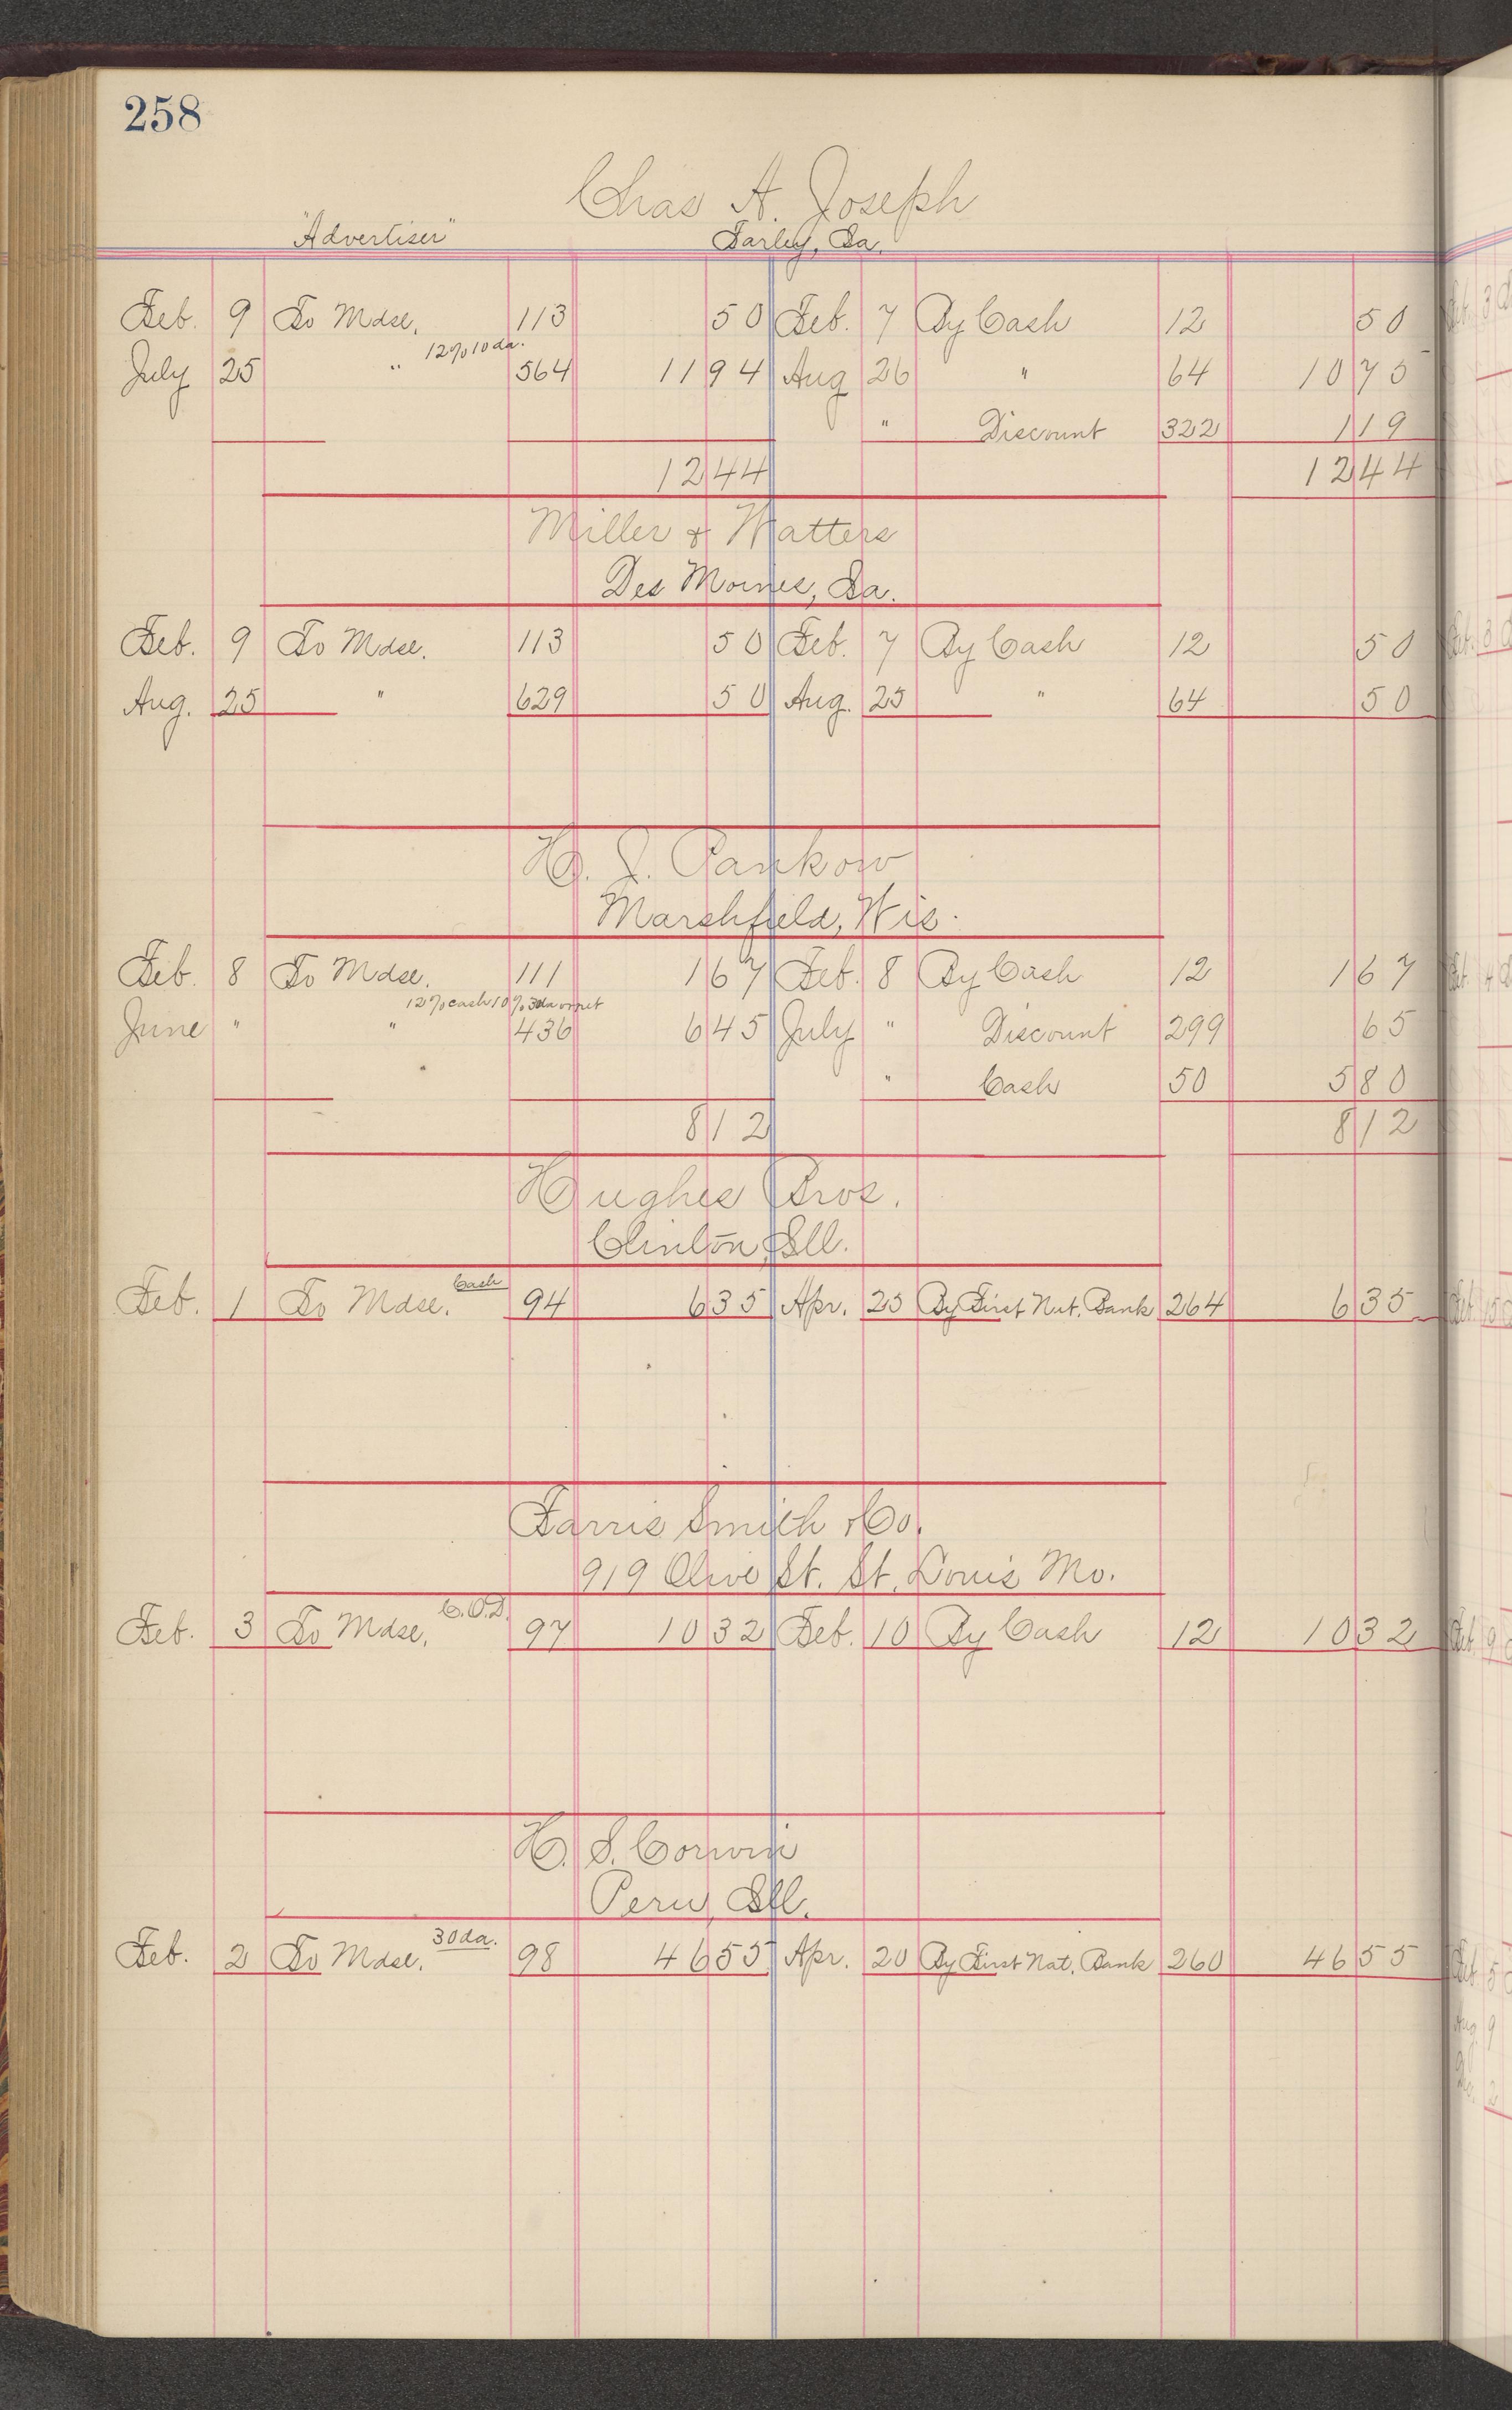 258
Chas A. Joseph
"Advertiser" Farley, Ia.
Feb. 9 To Mdse. 113 50 Feb. 7 By Cash 12 50
12% 10 da.
July 25 " 564 11 94 Aug 26 " 64 10 75
" Discount 322 1 19
12 44 12 44
Miller & Watters
Des Moines, Ia.
Feb. 9 To Mdse. 113 50 Feb. 7 By Cash 12 50
Aug. 25 " 629 50 Aug. 25 " 64 50
H. J. Pankow
Marshfield, Wis.
Feb. 8 To Mdse. 111 1 67 Feb. 8 By Cash 12 1 67
12% cash 10% 30 da or net
June " " 436 6 45 July " Discount 299 65
" Cash 50 5 80
8 12 8 12
Hughes Bros.
Clinton, Ill.
Feb. 1 To Mdse. Cash 94 6 35 Apr. 25 By First Nat. Bank 264 6 35
Farris Smith & Co.
919 Olive St. St. Louis Mo.
Feb. 3 To Mdse. C.O.D. 97 10 32 Feb. 10 By Cash 12 10 32
H. S. Corwin
Peru, Ill.
Feb. 2 To Mdse. 30 da. 98 46 55 Apr. 20 By First Nat. Bank 260 46 55